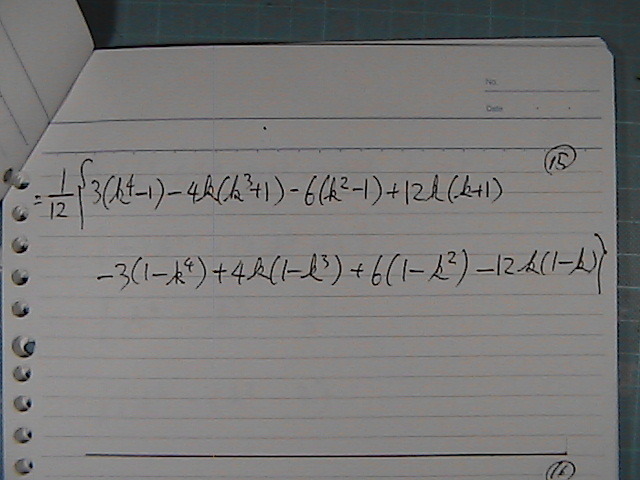 No.
Date
⑮
= 1/12 { 3(k⁴-1) - 4k(k³+1) - 6(k²-1) + 12k(k+1)
-3(1-k⁴) + 4k(1-k³) + 6(1-k²) - 12k(1-k) }
⑯